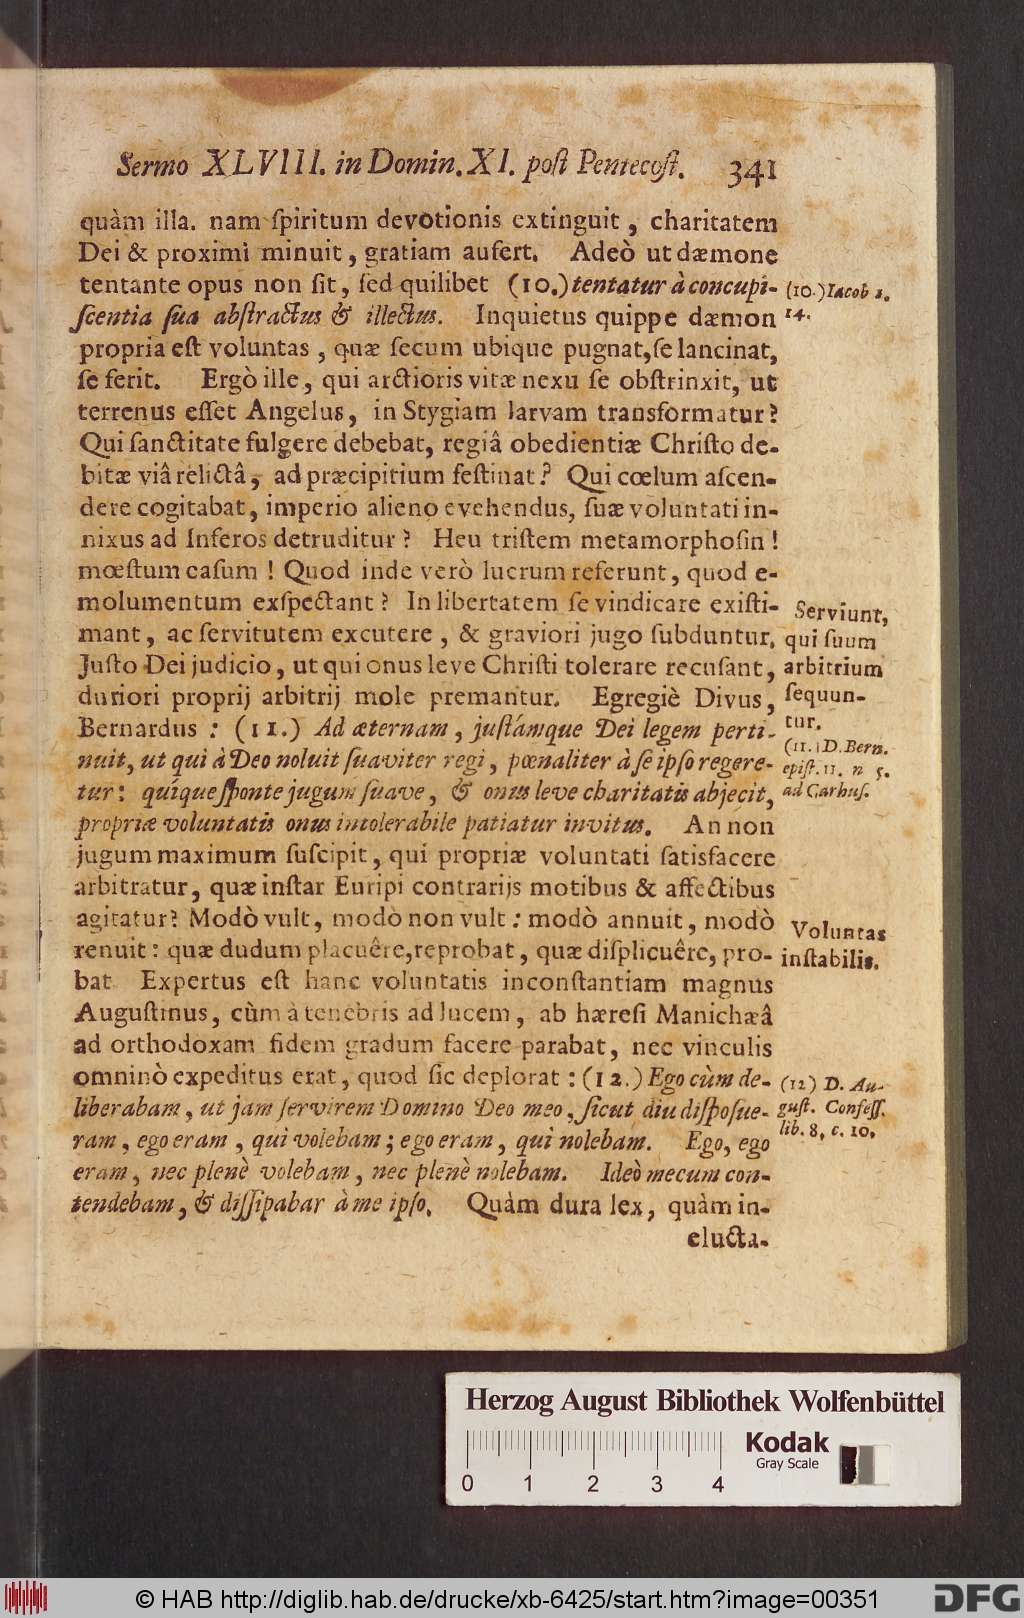 Sermo XLVIII. in Domin. XI. poſt Pentecoſt. 341
quàm illa. nam ſpiritum devotionis extinguit, charitatem
Dei & proximi minuit, gratiam aufert. Adeò ut dæmone
tentante opus non ſit, ſed quilibet (10.) tentatur à concupi-
ſcentia ſua abſtractus & illectus. Inquietus quippe dæmon
propria eſt voluntas, quæ ſecum ubique pugnat, ſe lancinat,
ſe ferit. Ergò ille, qui arctioris vitæ nexu ſe obſtrinxit, ut
terrenus eſſet Angelus, in Stygiam larvam transformatur?
Qui ſanctitate fulgere debebat, regiâ obedientiæ Chriſto de-
bitæ viâ relictâ, ad præcipitium feſtinat? Qui cœlum aſcen-
dere cogitabat, imperio alieno evehendus, ſuæ voluntati in-
nixus ad Inferos detruditur? Heu triſtem metamorphoſin!
mœſtum caſum! Quod inde verò lucrum referunt, quod e-
molumentum exſpectant? In libertatem ſe vindicare exiſti-
mant, ac ſervitutem excutere, & graviori jugo ſubduntur.
Juſto Dei judicio, ut qui onus leve Chriſti tolerare recuſant,
duriori proprij arbitrij mole premantur. Egregiè Divus,
Bernardus: (11.) Ad æternam, juſtámque Dei legem perti-
nuit, ut qui à Deo noluit ſuaviter regi, pœnaliter à ſe ipſo regere-
túr: quique ſponte jugum ſuave, & onus leve charitatis abjecit,
propriæ voluntatis onus intolerabile patiatur invitus. An non
jugum maximum ſuſcipit, qui propriæ voluntati ſatisfacere
arbitratur, quæ inſtar Euripi contrarijs motibus & affectibus
agitatur? Modò vult, modò non vult: modò annuit, modò
renuit: quæ dudum placuêre, reprobat, quæ diſplicuêre, pro-
bat Expertus eſt hanc voluntatis inconſtantiam magnus
Auguſtinus, cùm à tenebris ad lucem, ab hæreſi Manichæâ
ad orthodoxam fidem gradum facere parabat, nec vinculis
omninò expeditus erat, quod ſic deplorat: (12.) Ego cùm de-
liberabam, ut jam ſervirem Domino Deo meo, ſicut diu diſpoſue-
ram, ego eram, qui volebam; ego eram, qui nolebam. Ego, ego
eram, nec plenè volebam, nec plenè nolebam. Ideò mecum con-
tendebam, & diſſipabar à me ipſo. Quàm dura lex, quàm in-
elucta-
(10.) Iacob 1.
14.
Serviunt,
qui ſuum
arbitrium
ſequun-
tur.
(11.) D. Bern.
epiſt. 11. n 5.
ad Garhuſ.
Voluntas
inſtabilis.
(12) D. Au-
guſt. Confeſſ.
lib. 8, c. 10,
Herzog August Bibliothek Wolfenbüttel
Kodak
Gray Scale
0 1 2 3 4
© HAB http://diglib.hab.de/drucke/xb-6425/start.htm?image=00351
DFG